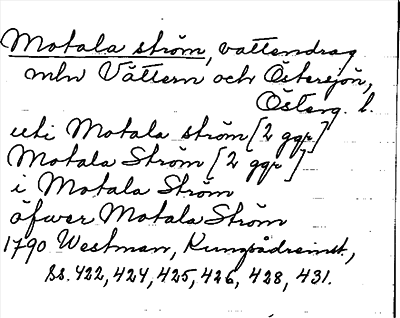 Motala ström, vattendrag
mln Vättern och Östersjön,
Österg. l.
uti Motala ström [2 ggr]
Motala Ström [2 ggr]
i Motala Ström
öfwer Motala Ström
1790 Westman,
ss. 422, 424, 425, 426, 428, 431.